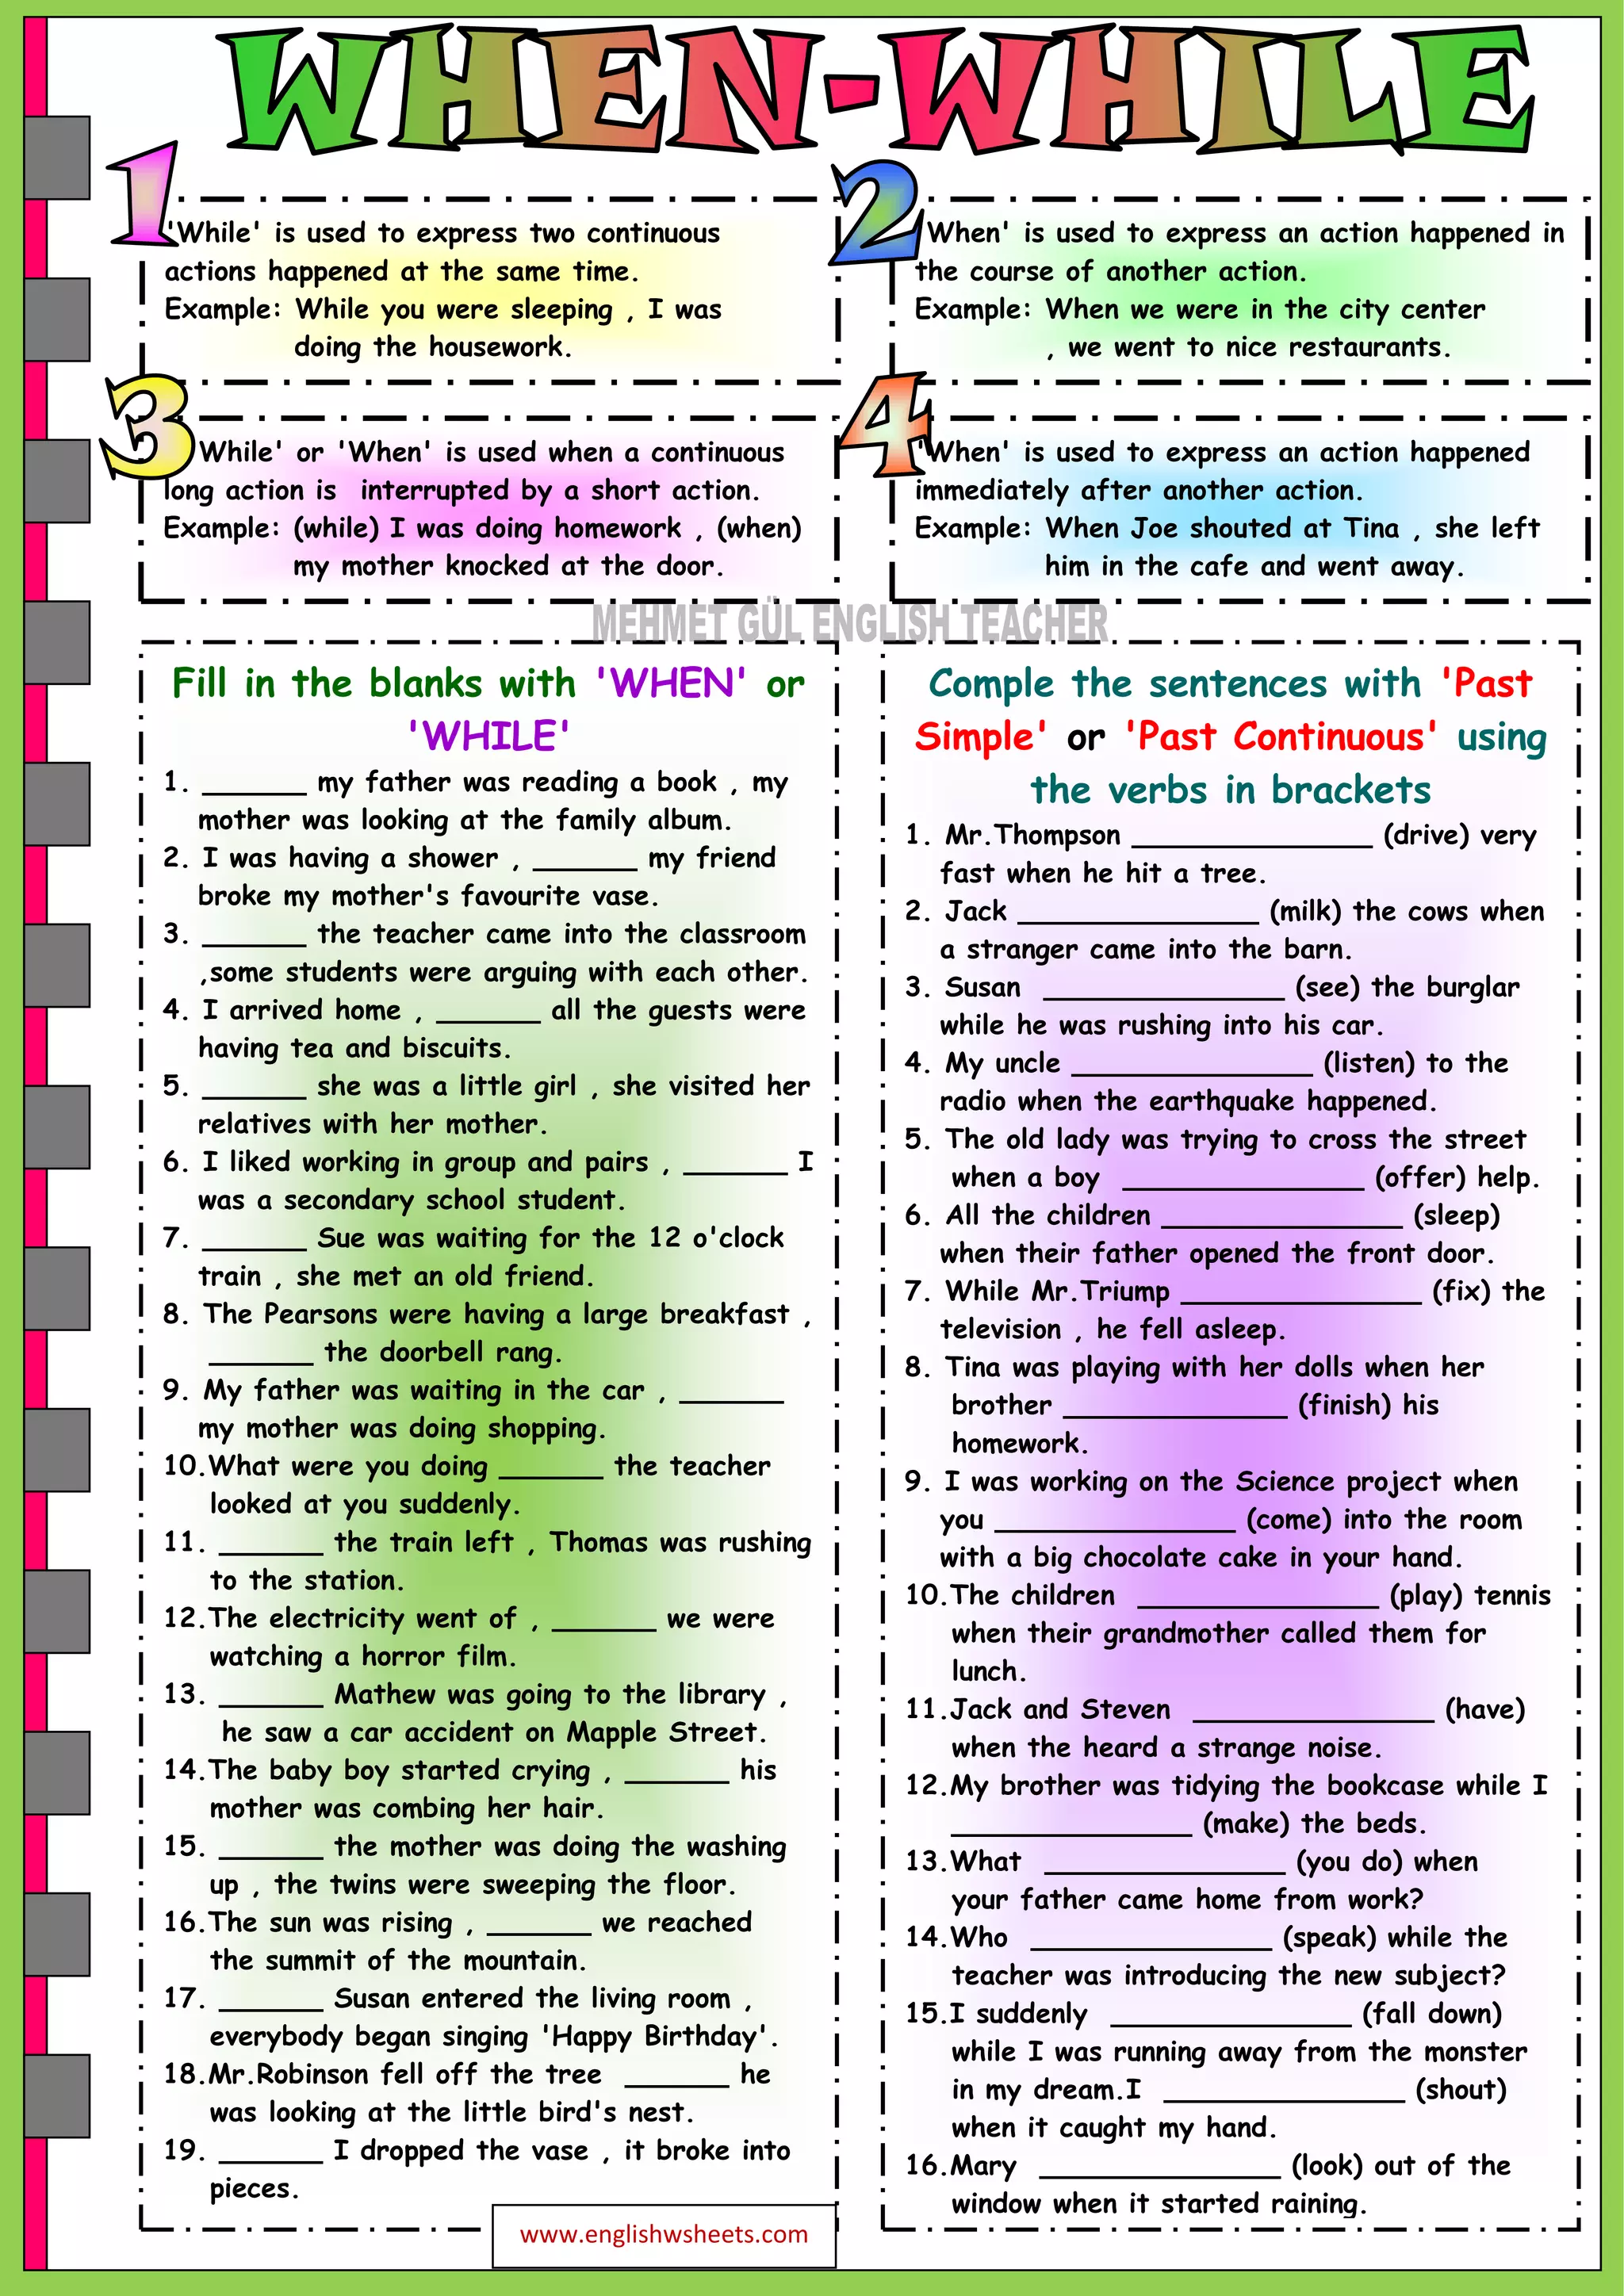 WHEN-WHILE
1
'While' is used to express two continuous
actions happened at the same time.
Example: While you were sleeping , I was
doing the housework.
2
'When' is used to express an action happened in
the course of another action.
Example: When we were in the city center
, we went to nice restaurants.
3
'While' or 'When' is used when a continuous
long action is interrupted by a short action.
Example: (while) I was doing homework , (when)
my mother knocked at the door.
4
'When' is used to express an action happened
immediately after another action.
Example: When Joe shouted at Tina , she left
him in the cafe and went away.
MEHMET GÜL ENGLISH TEACHER
Fill in the blanks with 'WHEN' or
'WHILE'
1. _______ my father was reading a book , my
mother was looking at the family album.
2. I was having a shower , _______ my friend
broke my mother's favourite vase.
3. _______ the teacher came into the classroom
,some students were arguing with each other.
4. I arrived home , _______ all the guests were
having tea and biscuits.
5. _______ she was a little girl , she visited her
relatives with her mother.
6. I liked working in group and pairs , _______ I
was a secondary school student.
7. _______ Sue was waiting for the 12 o'clock
train , she met an old friend.
8. The Pearsons were having a large breakfast ,
_______ the doorbell rang.
9. My father was waiting in the car , _______
my mother was doing shopping.
10.What were you doing _______ the teacher
looked at you suddenly.
11. _______ the train left , Thomas was rushing
to the station.
12.The electricity went of , _______ we were
watching a horror film.
13. _______ Mathew was going to the library ,
he saw a car accident on Mapple Street.
14.The baby boy started crying , _______ his
mother was combing her hair.
15. _______ the mother was doing the washing
up , the twins were sweeping the floor.
16.The sun was rising , _______ we reached
the summit of the mountain.
17. _______ Susan entered the living room ,
everybody began singing 'Happy Birthday'.
18.Mr.Robinson fell off the tree _______ he
was looking at the little bird's nest.
19. _______ I dropped the vase , it broke into
pieces.
Comple the sentences with 'Past
Simple' or 'Past Continuous' using
the verbs in brackets
1. Mr.Thompson ________________ (drive) very
fast when he hit a tree.
2. Jack ________________ (milk) the cows when
a stranger came into the barn.
3. Susan ________________ (see) the burglar
while he was rushing into his car.
4. My uncle ________________ (listen) to the
radio when the earthquake happened.
5. The old lady was trying to cross the street
when a boy ________________ (offer) help.
6. All the children ________________ (sleep)
when their father opened the front door.
7. While Mr.Triump ________________ (fix) the
television , he fell asleep.
8. Tina was playing with her dolls when her
brother _______________ (finish) his
homework.
9. I was working on the Science project when
you ________________ (come) into the room
with a big chocolate cake in your hand.
10.The children ________________ (play) tennis
when their grandmother called them for
lunch.
11.Jack and Steven ________________ (have)
when the heard a strange noise.
12.My brother was tidying the bookcase while I
________________ (make) the beds.
13.What ________________ (you do) when
your father came home from work?
14.Who ________________ (speak) while the
teacher was introducing the new subject?
15.I suddenly ________________ (fall down)
while I was running away from the monster
in my dream.I ________________ (shout)
when it caught my hand.
16.Mary ________________ (look) out of the
window when it started raining.
www.englishwsheets.com